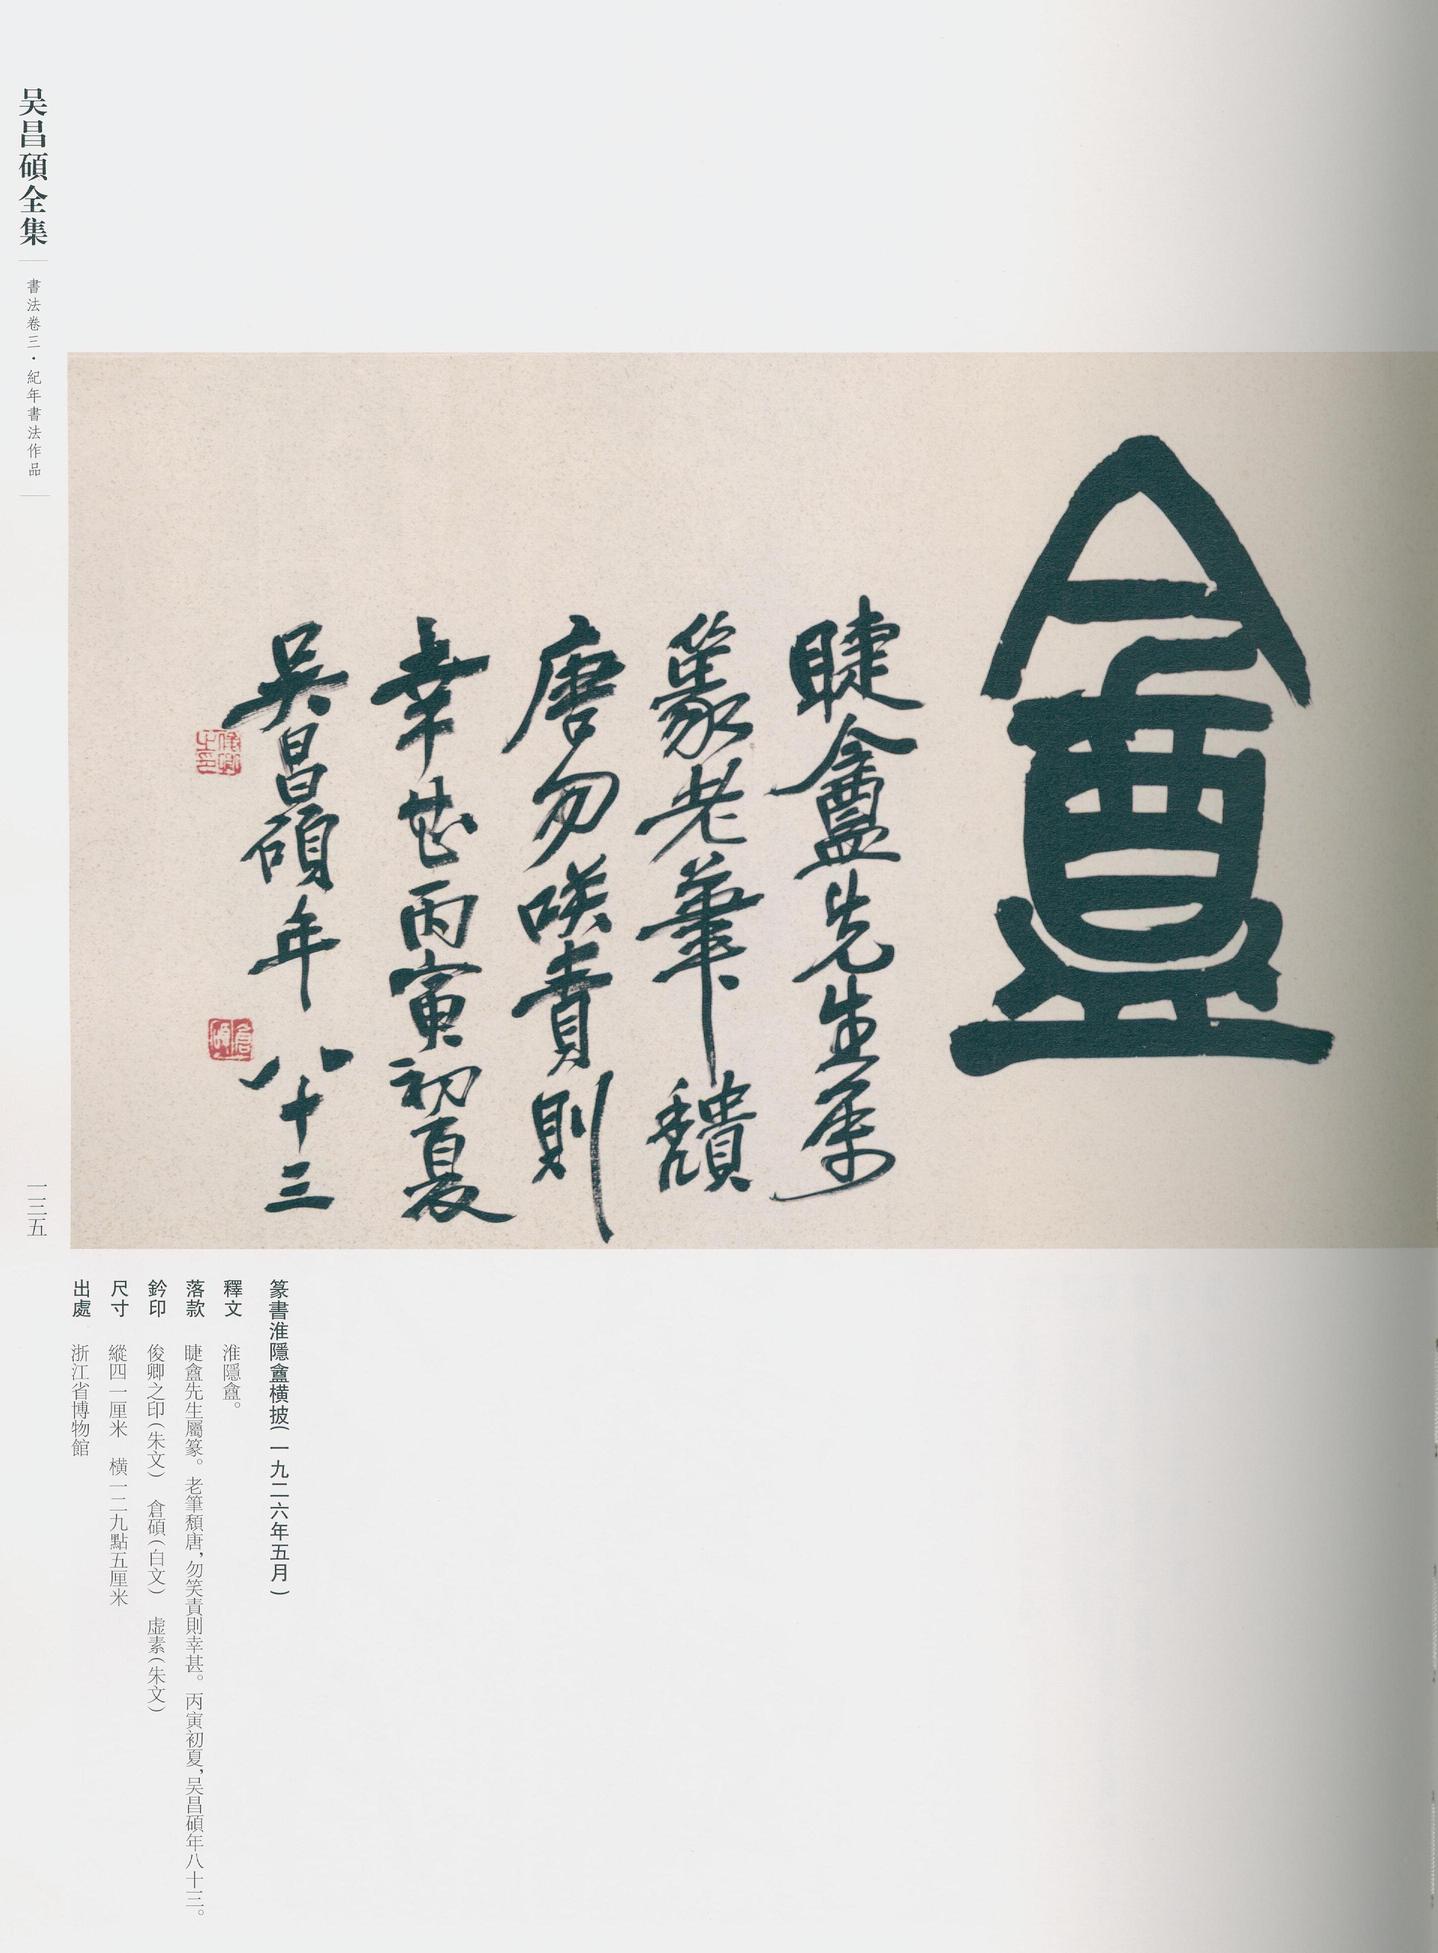 盦
睫盦先生屬
篆老筆頹
唐勿咲責則
幸甚丙寅初夏
吴昌碩年八十三
俊卿之印
倉碩
篆書淮隱盦橫披(一九二六年五月)
釋文 淮隱盦。
落款 睫盦先生屬篆。老筆頹唐,勿笑責則幸甚。丙寅初夏,吴昌碩年八十三。
鈐印 俊卿之印(朱文) 倉碩(白文) 虛素(朱文)
尺寸 縱四一厘米 橫一二九點五厘米
出處 浙江省博物館
吴昌碩全集
書法卷三·紀年書法作品
一三五